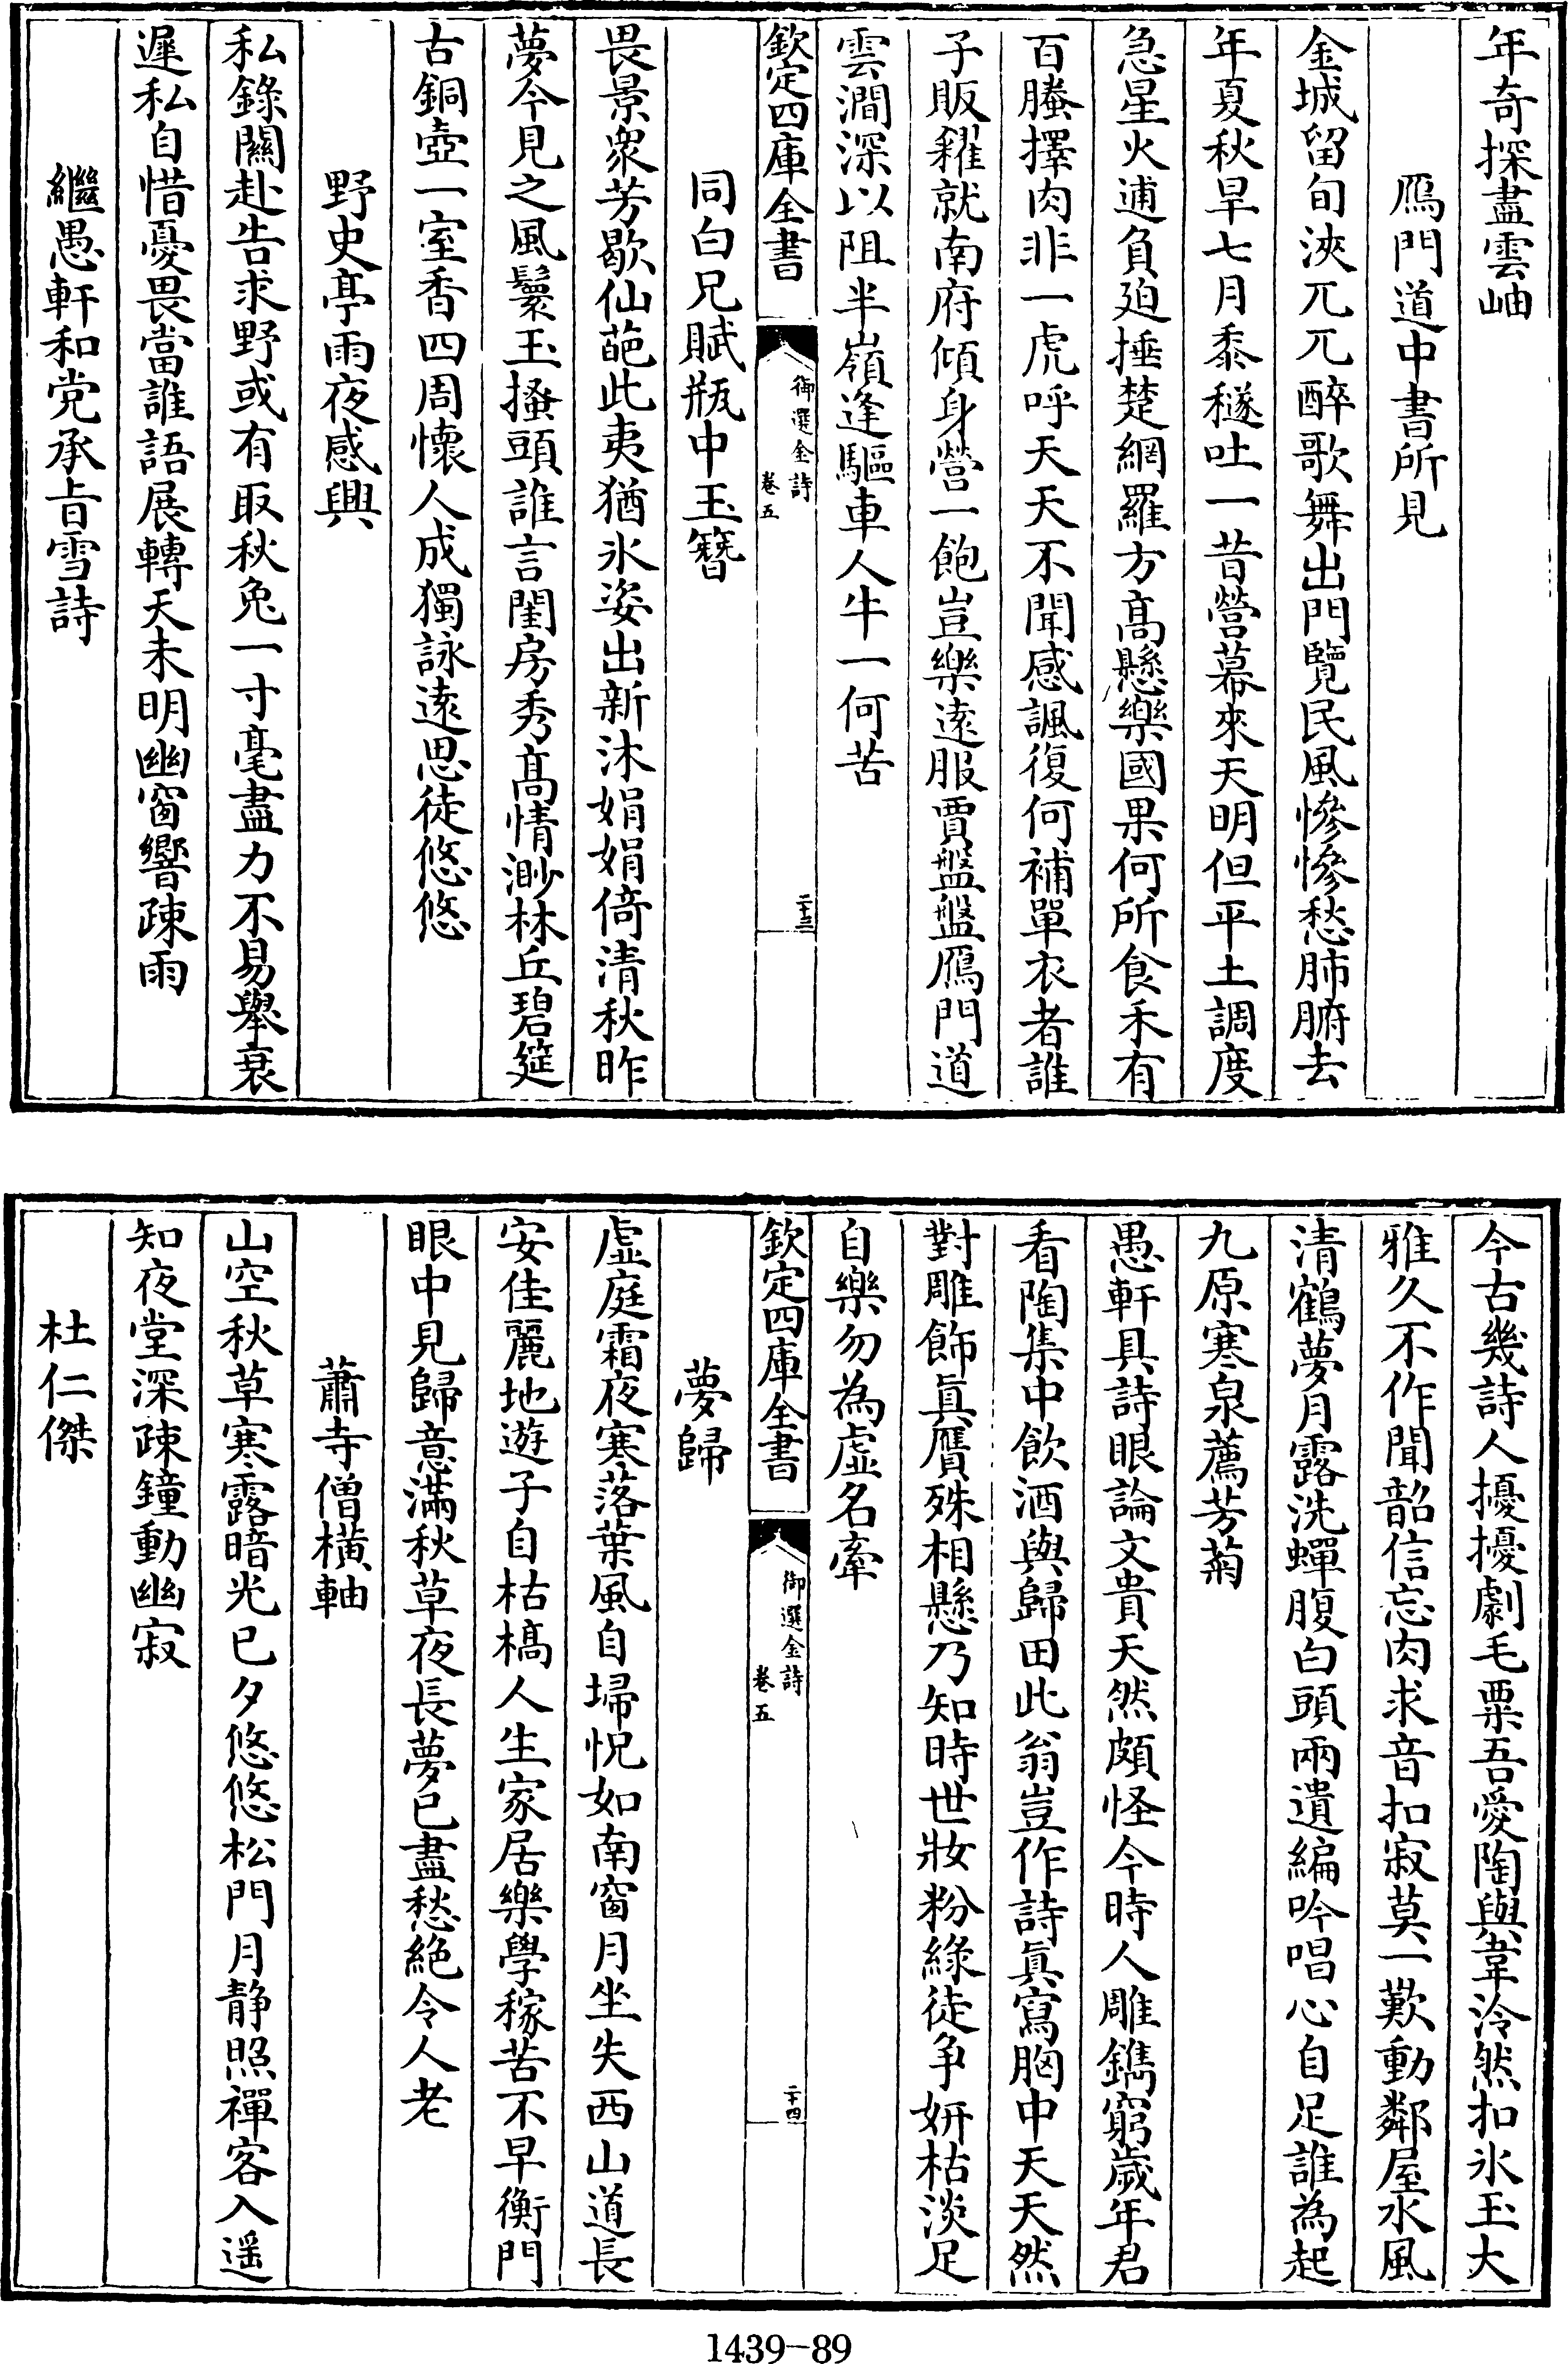 年奇探盡雲岫
鴈門道中書所見
金城留旬浹兀兀醉歌舞出門覽民風慘慘愁肺腑去
年夏秋旱七月黍穟吐一昔營幕來天明但平土調度
急星火逋負迫捶楚網羅方高懸樂國果何所食禾有
百螣擇肉非一虎呼天天不聞感諷復何補單衣者誰
子販糴就南府傾身營一飽豈樂遠服賈盤盤鴈門道
雲澗深以阻半嶺逢驅車人牛一何苦
欽定四庫全書
御選金詩
卷五
二十三
同白兄賦瓶中玉簪
畏景衆芳歇仙葩此夷猶氷姿出新沐娟娟倚清秋昨
夢今見之風鬟玉搔頭誰言閨房秀高情渺林丘碧筵
古銅壺一室香四周懷人成獨詠遠思徒悠悠
野史亭雨夜感興
私錄關赴告求野或有取秋兔一寸毫盡力不易舉衰
遲私自惜憂畏當誰語展轉天未明幽窗響疎雨
繼愚軒和党承旨雪詩
今古幾詩人擾擾劇毛粟吾愛陶與韋泠然扣氷玉大
雅久不作聞韶信忘肉求音扣寂莫一歎動鄰屋水風
清鶴夢月露洗蟬腹白頭兩遺編吟唱心自足誰為起
九原寒泉薦芳菊
愚軒具詩眼論文貴天然頗怪今時人雕鐫窮歲年君
看陶集中飲酒與歸田此翁豈作詩眞寫胸中天天然
對雕飾眞贋殊相懸乃知時世妝粉綠徒爭妍枯淡足
自樂勿為虛名牽
欽定四庫全書
御選金詩
卷五
二十四
夢歸
虛庭霜夜寒落葉風自埽怳如南窗月坐失西山道長
安佳麗地遊子自枯槁人生家居樂學稼苦不早衡門
眼中見歸意滿秋草夜長夢已盡愁絕令人老
蕭寺僧横軸
山空秋草寒露暗光已夕悠悠松門月靜照禪客入遥
知夜堂深疎鐘動幽寂
杜仁傑
1439-89